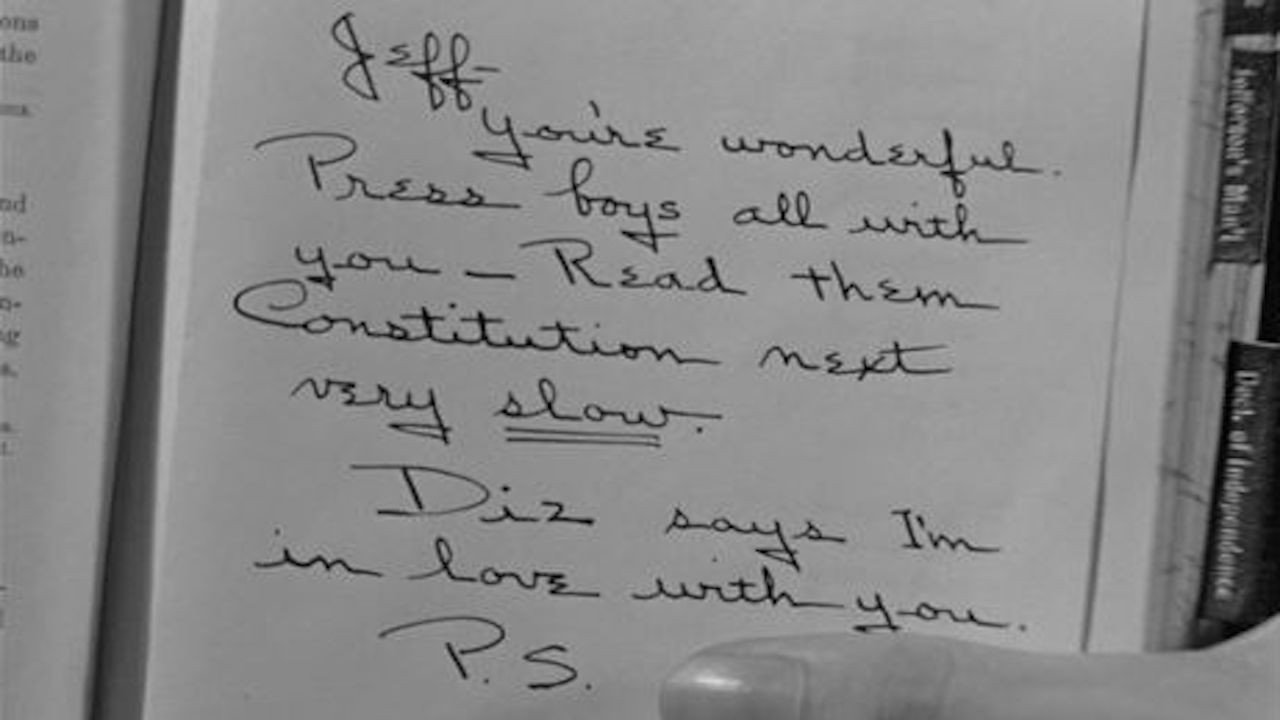 Jeff-
you're wonderful.
Press boys all with
you — Read them
Constitution next
very slow.
Diz says I'm
in love with you.
P.S.
ons
the
nd
n-
he
n-
ng
Decl. of Independence